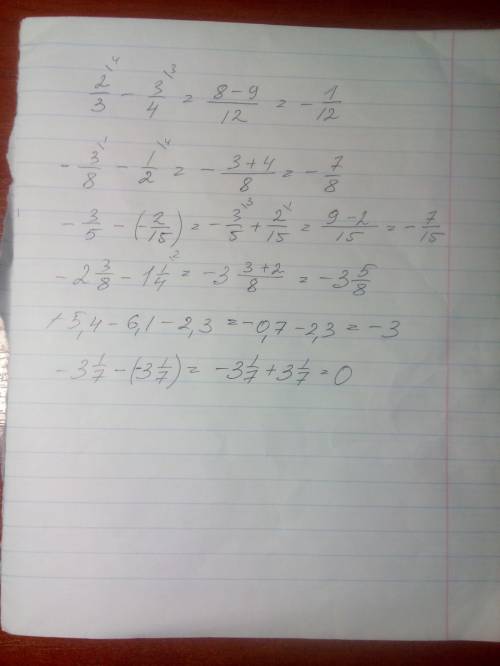 2/3\4 - 3/4\3 = (8-9)/12 = - 1/12
- 3/8\1 - 1/2\4 = - (3+4)/8 = - 7/8
- 3/5 - (- 2/15) = - 3/5\3 + 2/15\1 = (9-2)/15 = - 7/15
- 2 3/8 - 1 1/4\2 = - 3 (3+2)/8 = - 3 5/8
+ 5,4 - 6,1 - 2,3 = - 0,7 - 2,3 = - 3
- 3 1/7 - (- 3 1/7) = - 3 1/7 + 3 1/7 = 0